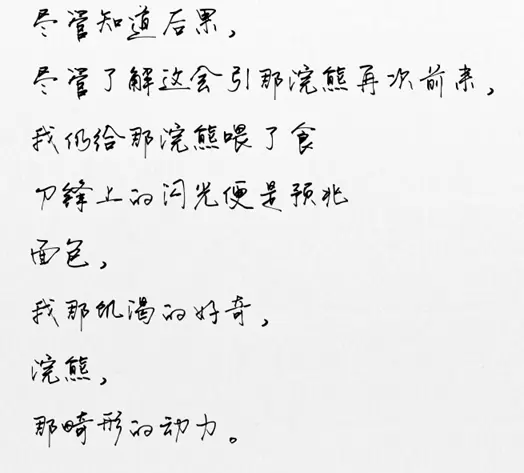 尽管知道后果，
尽管了解这会引那浣熊再次前来，
我仍给那浣熊喂了食
刀锋上的闪光便是预兆
面包，
我那饥渴的好奇，
浣熊，
那畸形的动力。